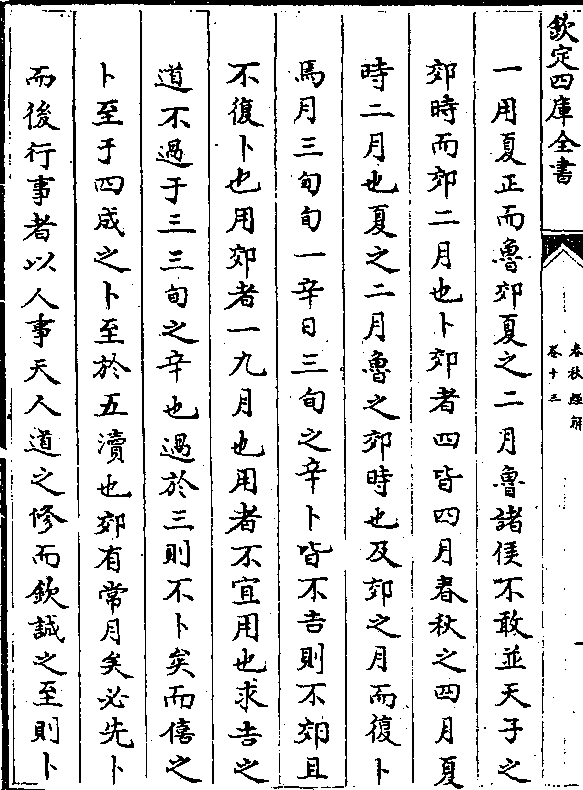 欽定四庫全書
春秋經解
卷十三
一用夏正而魯郊夏之二月魯諸侯不敢並天子之
郊時而郊二月也卜郊者四皆四月春秋之四月夏
時二月也夏之二月魯之郊時也及郊之月而復卜
焉月三旬旬一辛日三旬之辛卜皆不吉則不郊且
不復卜也用郊者一九月也用者不宜用也求吉之
道不過于三三旬之辛也過於三則不卜矣而僖之
卜至于四成之卜至於五瀆也郊有常月矣必先卜
而後行事者以人事天人道之修而欽誠之至則卜